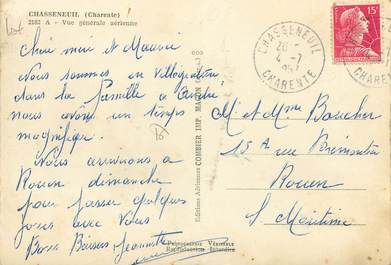 CHASSENEUIL (Charente)
2182 A - Vue générale aérienne
Chère mère et Maurice
Nous sommes en Villégiature
dans la famille à
nous avons un temps
magnifique.
Nous arriverons à
Rouen dimanche
pour passer quelques
jours avec Vous
Bons Baisers Jeannette
Editions Aériennes COMBIER IMP. MACON
Photographie Véritable
Reproduction Interdite
CHASSENEUIL
4-7
CHARENTE
15F
CHARENTE
M et Mme Boucher
15A rue Brémontier
Rouen
S. Maritime